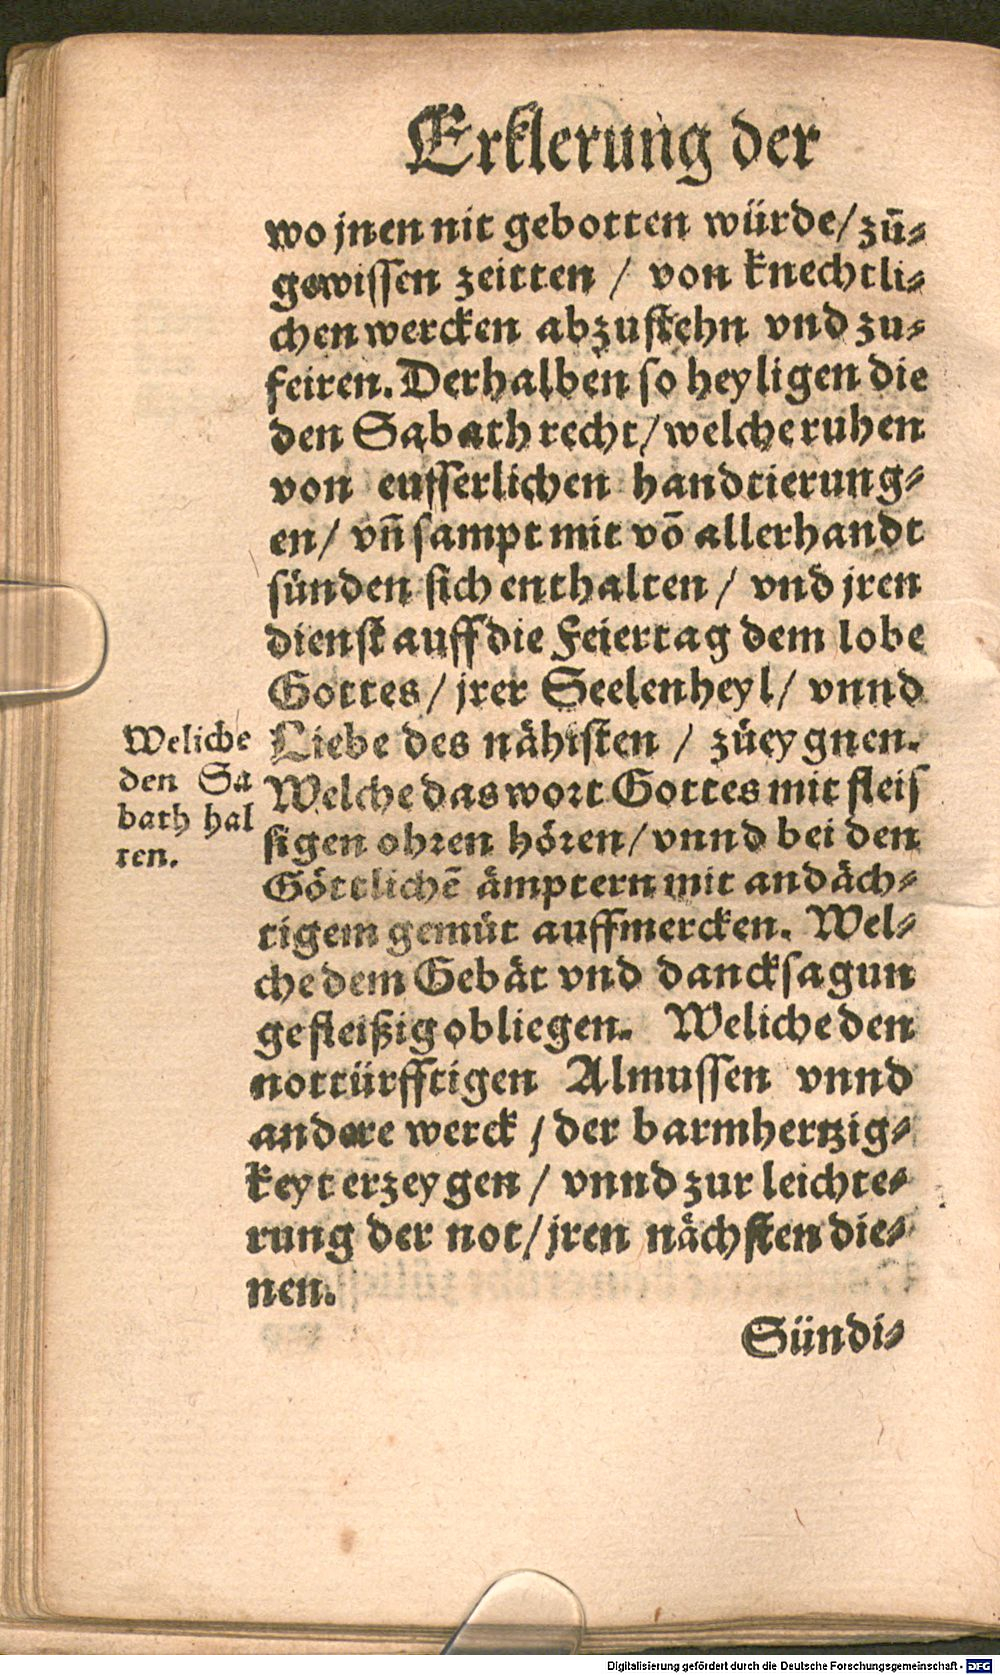 Erklerung der
wo jnen nit gebotten würde/ zū⸗
gewissen zeitten / von knechtli⸗
chen wercken abzustehn vnd zu⸗
feiren. Derhalben so heyligen die
den Sabath recht/ welche ruhen
von eusserlichen handtierung⸗
en/ vn̄ sampt mit vō allerhandt
sünden sich enthalten / vnd jren
dienst auff die Feiertag dem lobe
Gottes/ jrer Seelenheyl/ vnnd
Liebe des nähisten / züeygnen.
Welche das wort Gottes mit fleis
sigen ohren hören/ vnnd bei den
Göttlichē ämptern mit andäch⸗
tigem gemüt auffmercken. Wel⸗
che dem Gebät vnd dancksagun
ge fleißig obliegen. Weliche den
nottürfftigen Almussen vnnd
andere werck / der barmhertzig⸗
keyt erzeygen / vnnd zur leichte⸗
rung der not/ jren nächsten die⸗
nen.
Sündi⸗
Weliche
den Sa
bath hal
ten.
Digitalisierung gefördert durch die Deutsche Forschungsgemeinschaft - DFG